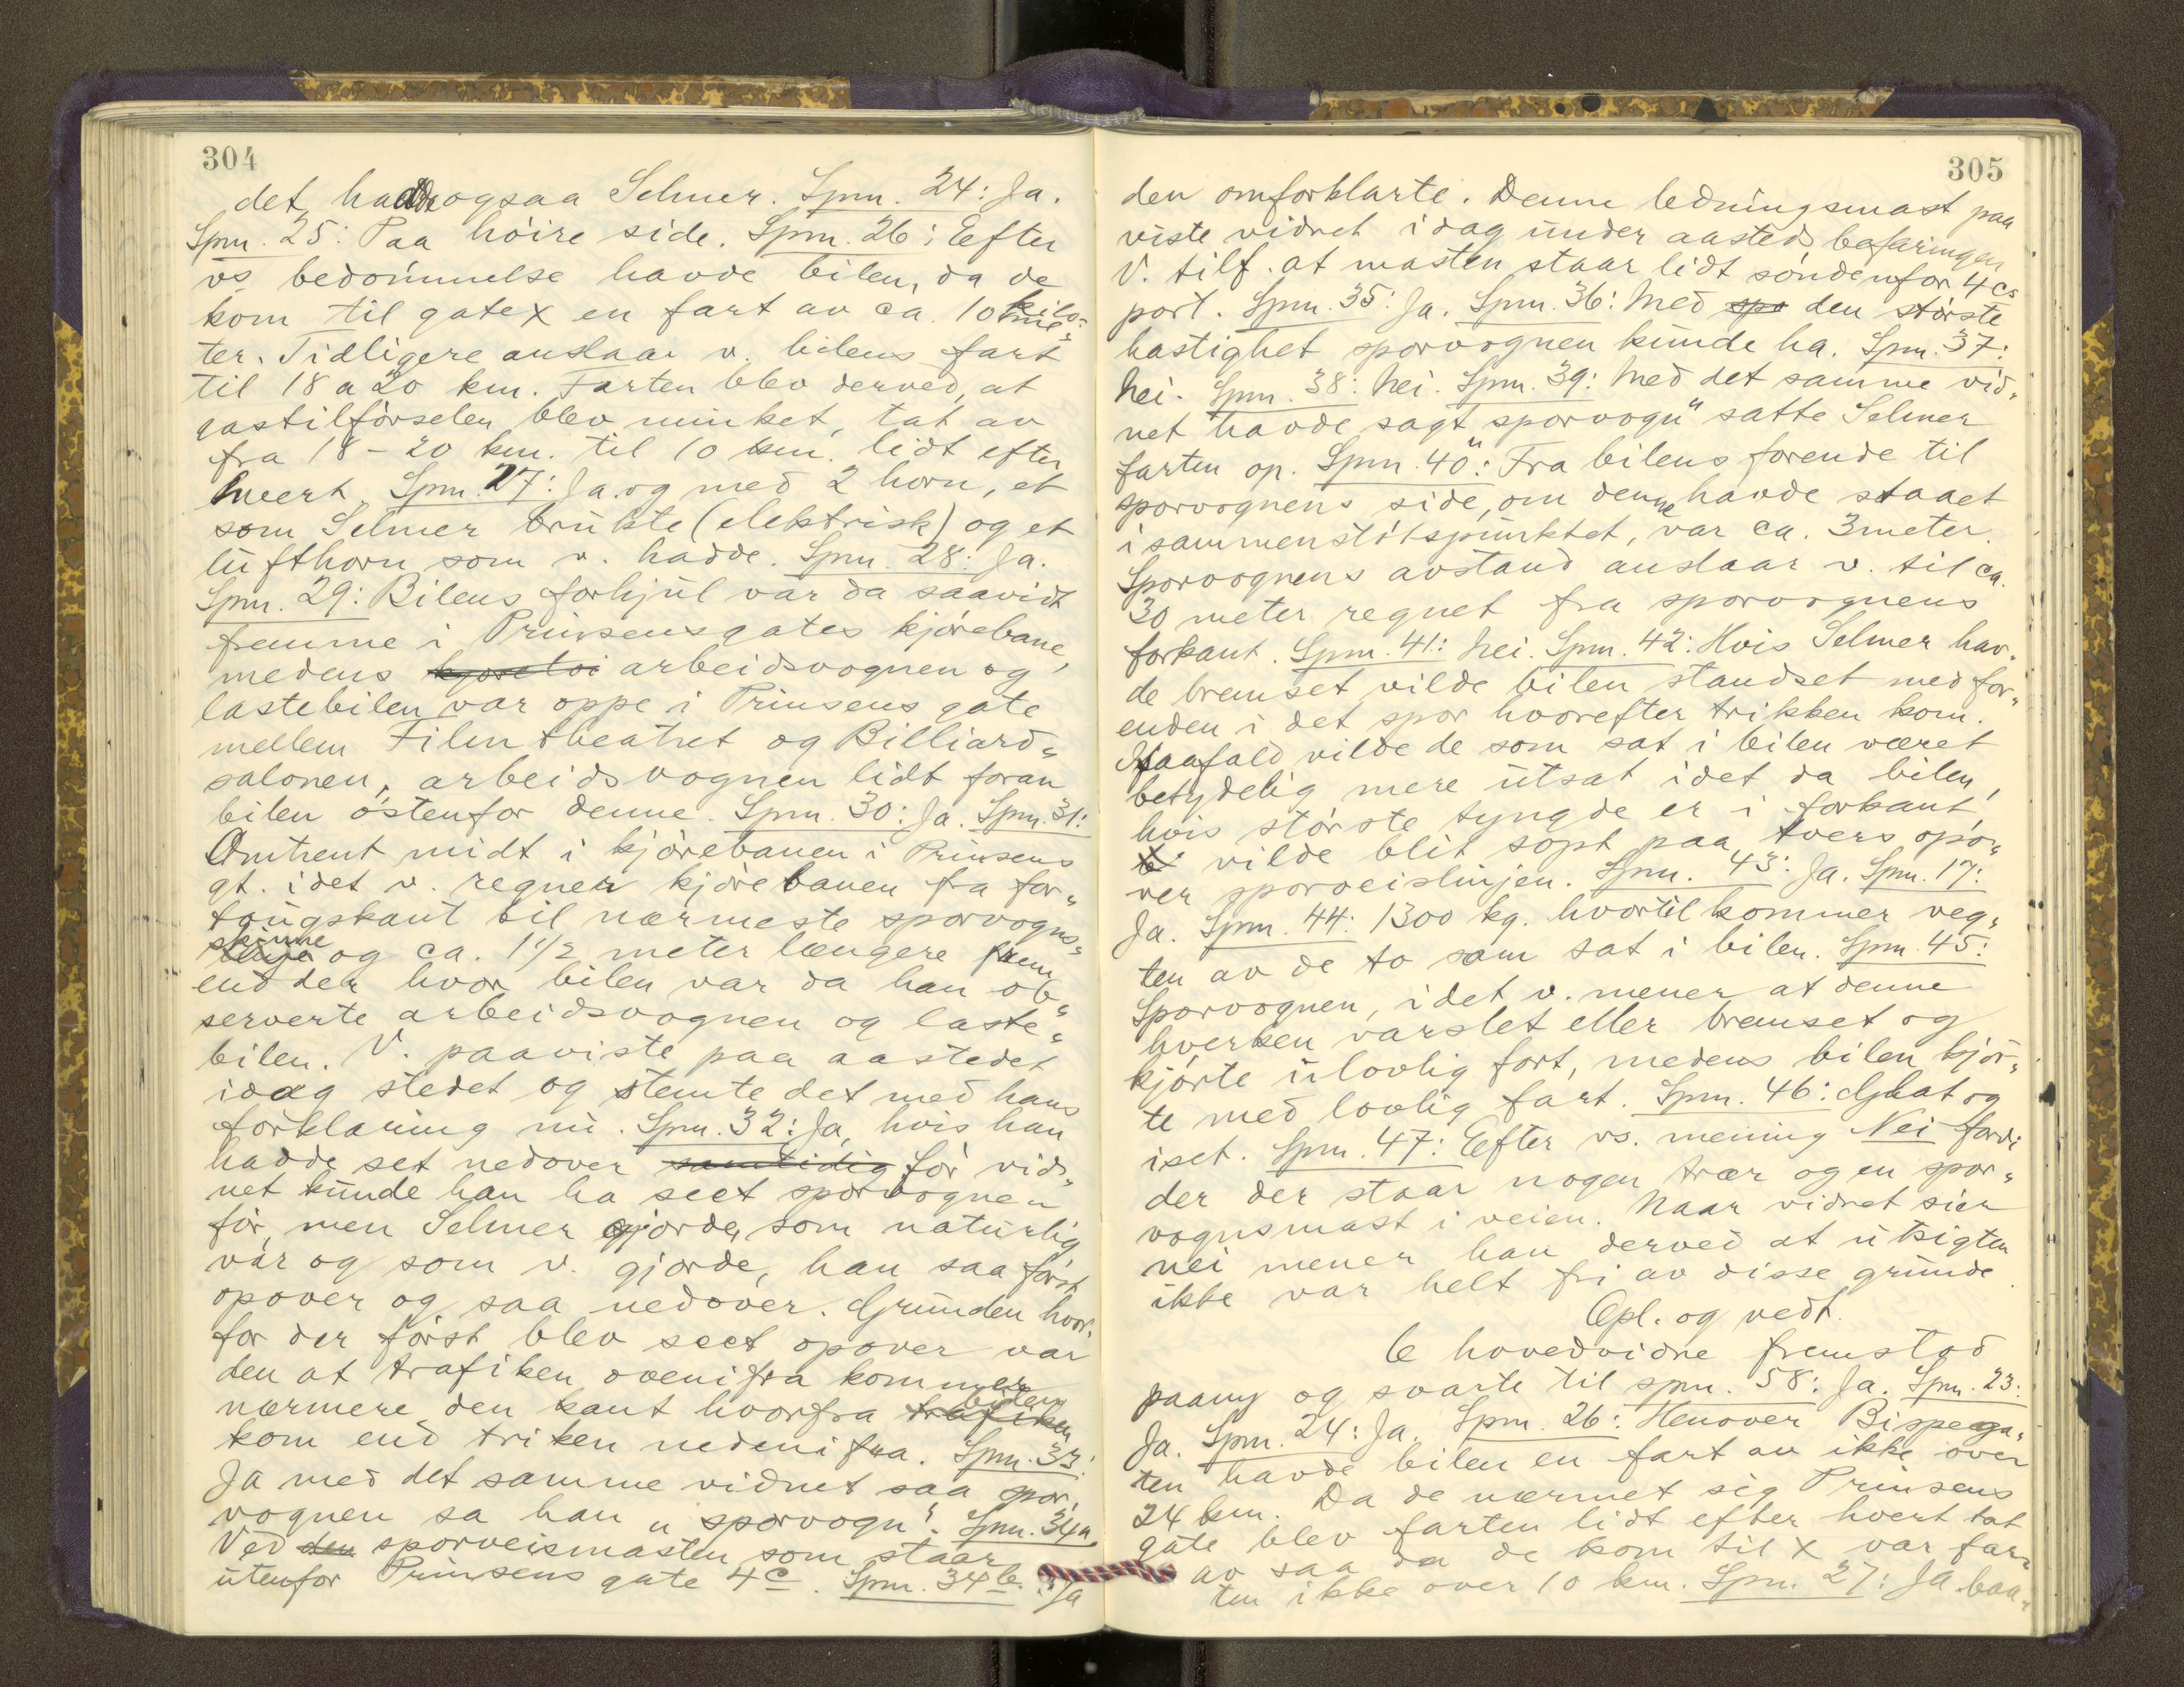 304
det hadde ogsaa Selmer. Spm. 24: Ja.
Spm. 25: Paa høire side. Spm. 26: Eefter
vs bedømmelse havde bilen, da de
kom til gatex en fart av ca. 10 kilo-
me-
ter. Tidligere anslaar v. bilens fart
til 18 a 20 km. Farten blev derved, at
gastilførselen blev minket, tat av
fra 18 - 20 km. til 10 km. lidt efter
hvert. Spm. 27: Ja og med 2 horn, et
som Selmer brukte (elektrisk) og et
lufthorn som v. hadde. Spm. 28: Ja.
Spm. 29: Bilens forhjul var da saavidt
fremme i Prinsensgates kjørebane,
medens arbeidsvognen og
lastebilen var oppe i Prinsens gate
mellem Filmtheatret og Billiard-
salonen, arbeidsvognen lidt foran
bilen østenfor denne. Spm. 30: Ja. Spm. 31:
Omtrent midt i kjørebanen i Prinsens
gt. idet v. regner kjørebanen fra for-
tougskant til nærmeste sporvogns-
skinne
og ca. 1 1/2 meter længere frem
end der hvor bilen var da han ob-
serverte arbeidsvognen og laste-
bilen. V. paaviste paa aastedet
idag stedet og stemte det med hans
forklaring nu. Spm. 32: Ja, hvis han
hadde set nedover samtidig før vid-
net kunde han ha seet sporvognen
før, men Selmer gjorde, som naturlig
var og som v. gjorde, han saa først
opover og saa nedover. Grunden hvor-
for der først blev seet opover var
den at trafiken ovenifra kommer
bilen
nærmere den kant hvorfra trafiken
kom end triken nedenifra. Spm. 33:
Ja med det samme vidnet saa spor-
vognen sa han "sporvogn". Spm. 34a
Ved den sporveismasten som staar
utenfor Prinsens gate 4c. Spm. 34b: Ja
305
den omforklarte. Denne ledningsmast paa
viste vidnet idag under aastedsbefaringen
V. tilf. at masten staar lidt søndenfor 4cs
port. Spm. 35: Ja. Spm. 36: Med spo den største
hastighet sporvognen kunde ha. Spm. 37:
Nei. Spm. 38: Nei. Spm. 39: Med det samme vid-
net havde sagt "sporvogn" satte Selmer
farten op. Spm. 40: Fra bilens forende til
sporvognens side, om denne havde staaet
i sammenstøtspunktet, var ca. 3 meter.
Sporvognens avstand anslaar v. til ca.
30 meter regnet fra sporvognens
forkant. Spm. 41: Nei. Spm. 42: Hvis Selmer hav-
de bremset vilde bilen standset med for-
enden i det spor hvorefter trikken kom.
Isaafald vilde de som sat i bilen været
betydelig mere utsat idet da bilen,
hvis største tyngde er i forkant,
vilde blit sopt paa tvers opo-
ver sporveislinjen. Spm. 43: Ja. Spm. 17:
Ja. Spm. 44: 1300 kg. hvortil kommer veg-
ten av de to som sat i bilen. Spm. 45:
Sporvognen, idet v. mener at denne
hverken varslet eller bremset og
kjørte ulovlig fort, medens bilen kjør-
te med lovlig fart. Spm. 46: Glat og
iset. Spm. 47: Eefter vs. mening Nei fordi
der der staar nogen trær og en spor-
vognsmast i veien. Naar vidnet sier
nei mener han derved at utsigten
ikke var helt fri av disse grunde.
Opl. og vedt.
6 hovedvidne fremstod
paany og svarte til spm. 58: Ja. Spm. 23:
Ja. Spm. 24: Ja. Spm. 26: Henover Bispega-
ten havde bilen en fart av ikke over
24 km. Da de nærmet sig Prinsens
gate blev farten lidt efter hvert tat
av saa da de kom til x var far-
ten ikke over 10 km. Spm. 27: Ja baa-